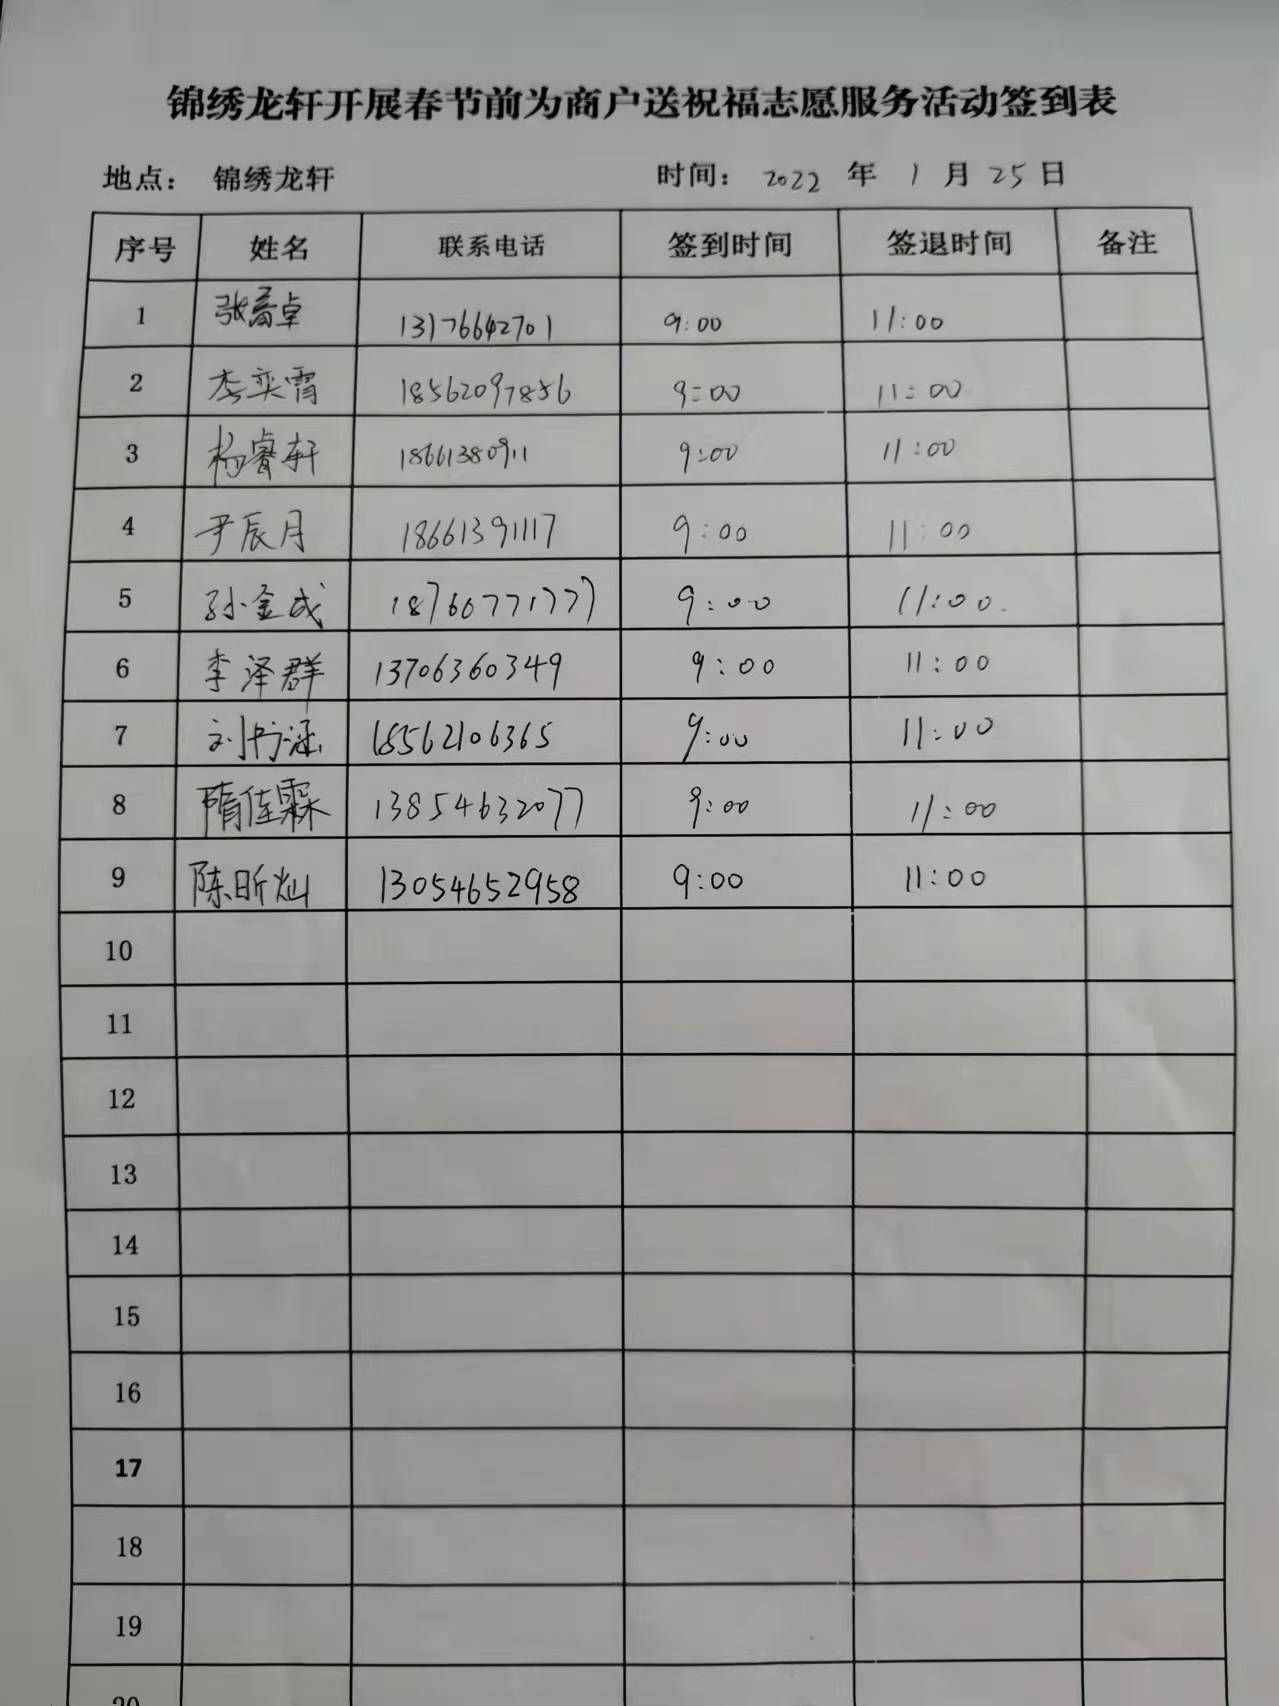 锦绣龙轩开展春节前为商户送祝福志愿服务活动签到表
地点： 锦绣龙轩 时间： 2022 年 1 月 25 日
序号 姓名 联系电话 签到时间 签退时间 备注
1 张 卓 13176642701 9:00 11:00
2 李奕霄 18562097856 9:00 11:00
3 杨睿轩 18661380911 9:00 11:00
4 尹辰月 18661391117 9:00 11:00
5 孙金成 18760771777 9:00 11:00.
6 李泽群 13706360349 9:00 11:00
7 刘书涵 18562106365 9:00 11:00
8 隋佳霖 13854632077 9:00 11:00
9 陈昕灿 13054652958 9:00 11:00
10
11
12
13
14
15
16
17
18
19
20